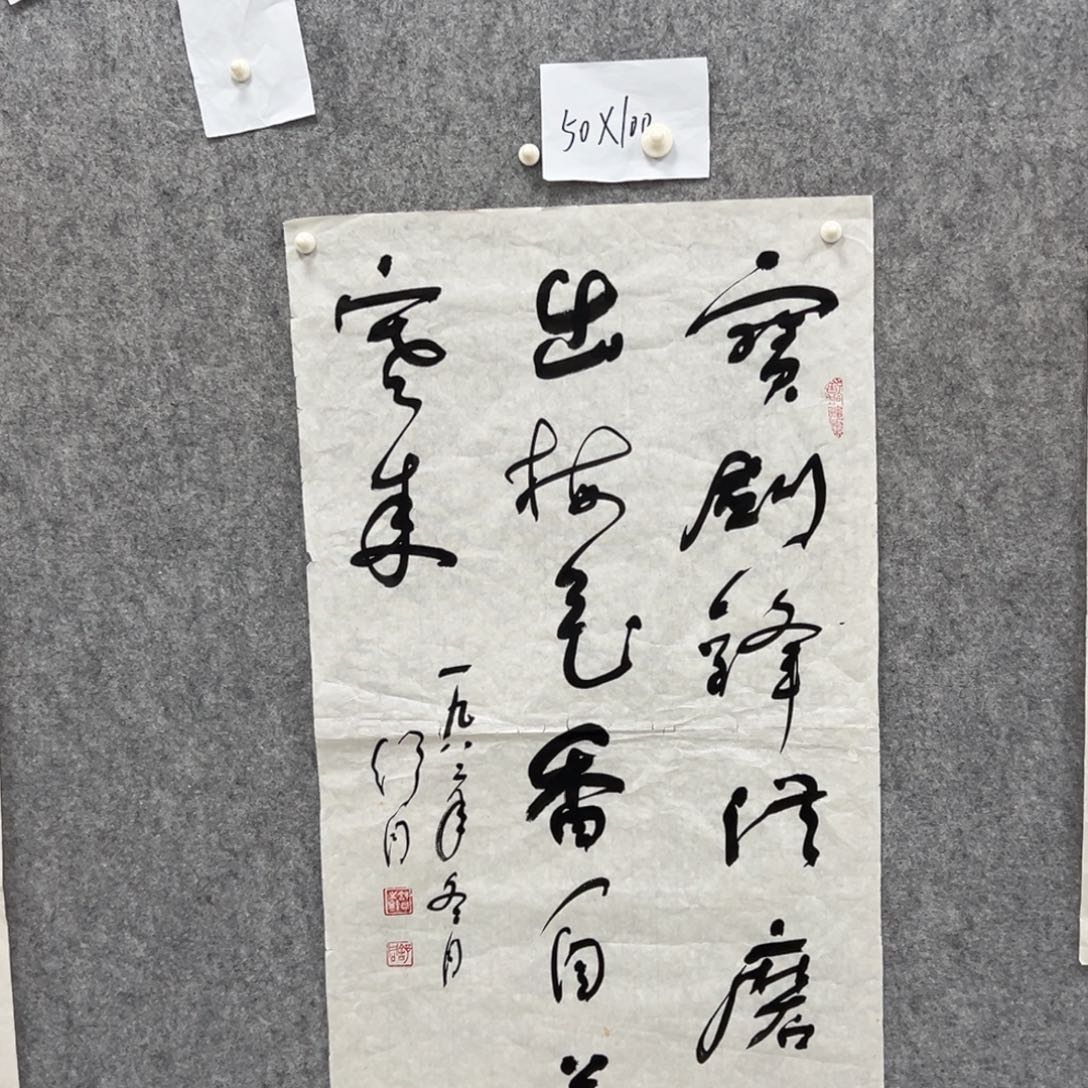 50X100
寶劍鋒從磨
出梅花香自
寒來
一九八二年冬月
舒同